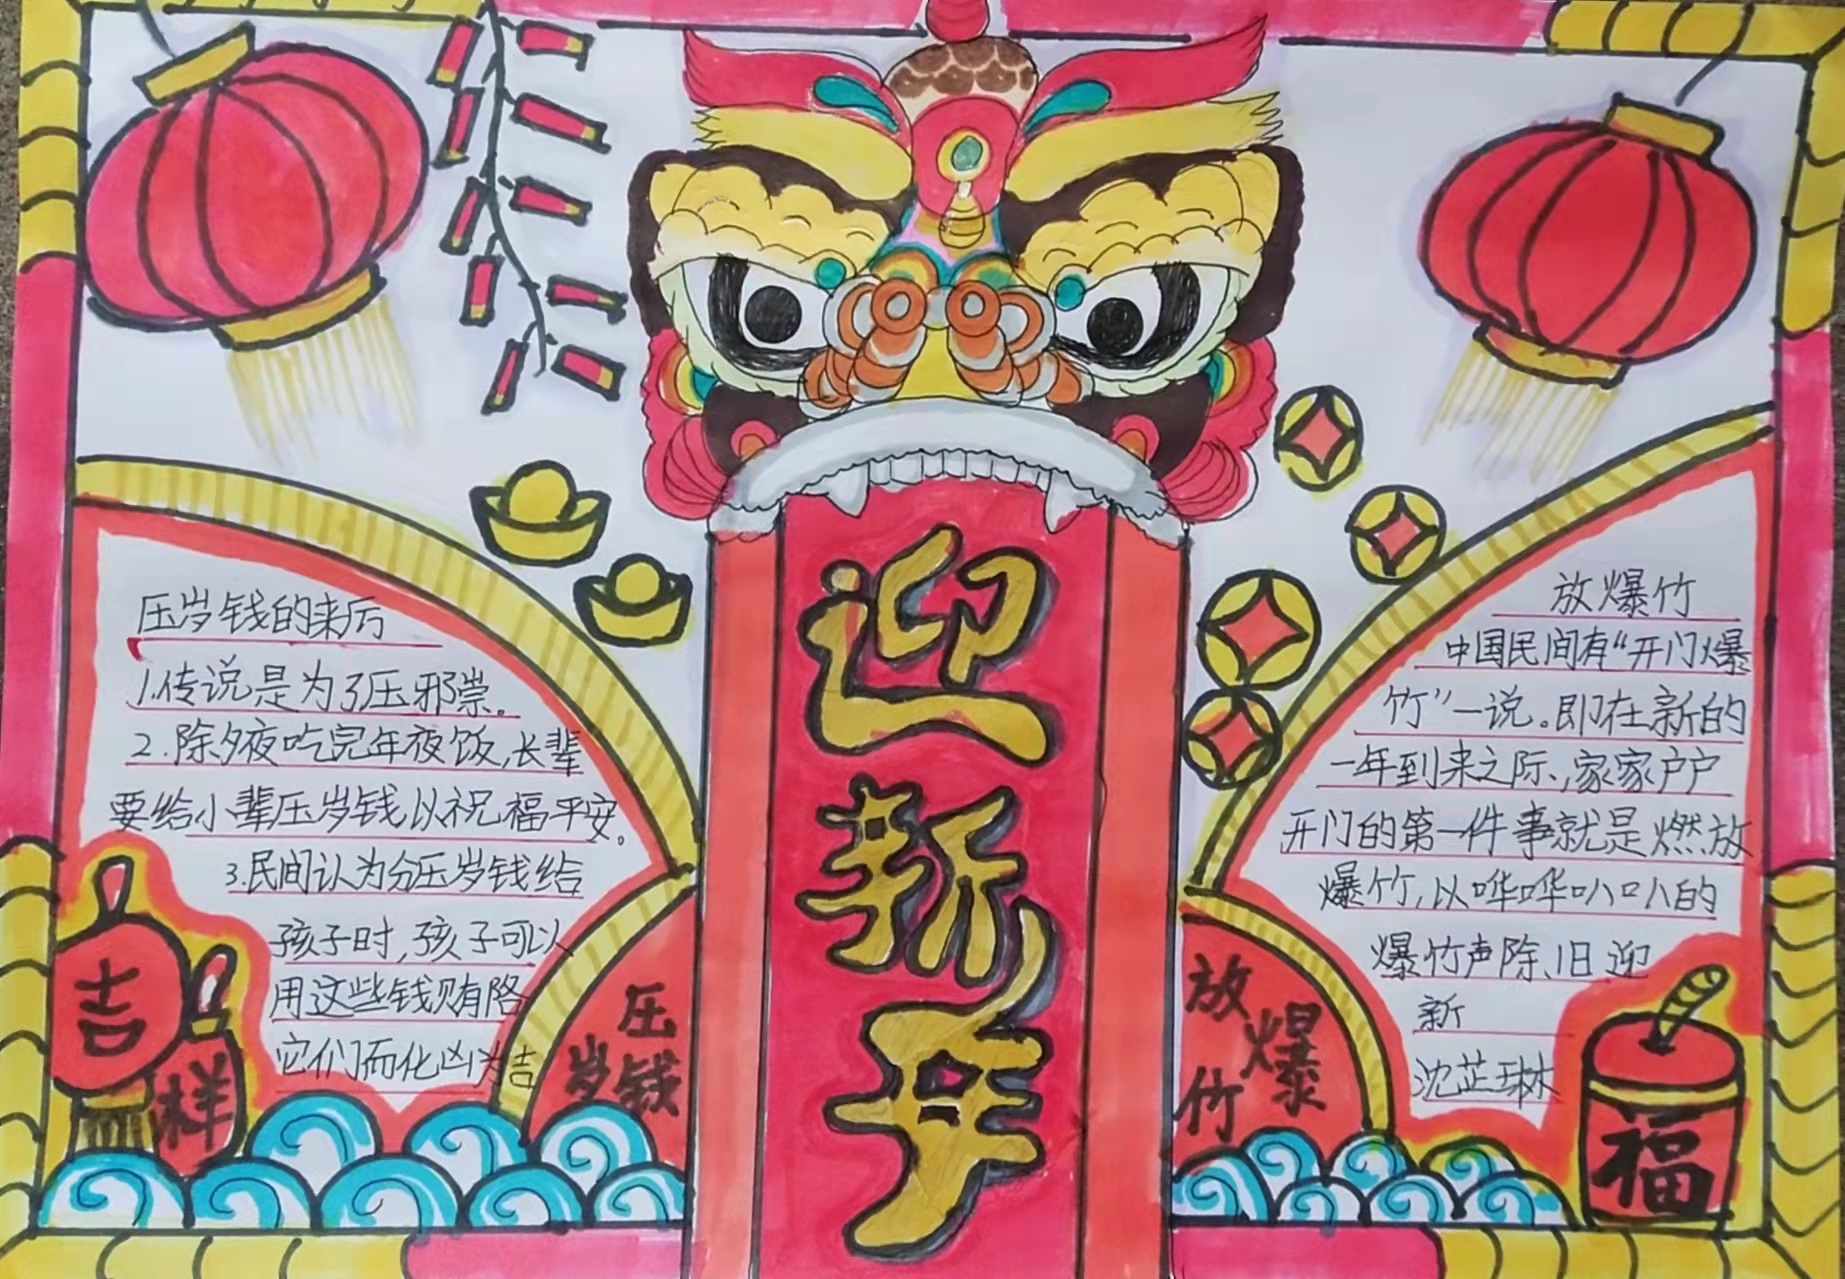 迎新年
压岁钱的来历
1.传说是为了压邪祟。
2.除夕夜吃完年夜饭,长辈
要给小辈压岁钱以祝福平安。
3.民间认为分压岁钱给
孩子时,孩子可以
用这些钱贿赂
它们而化凶为吉
吉
祥
压
岁钱
放爆竹
中国民间有“开门爆
竹”一说。即在新的
一年到来之际,家家户户
开门的第一件事就是燃放
爆竹,以哗哗叭叭的
爆竹声除旧迎
新
沈芷琳
放爆
竹
福